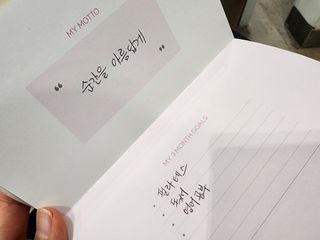 MY MOTTO
“ 순간을 아름답게 ”
MY 3 MONTH GOALS
• 필라테스
• 독서
• 영어공부